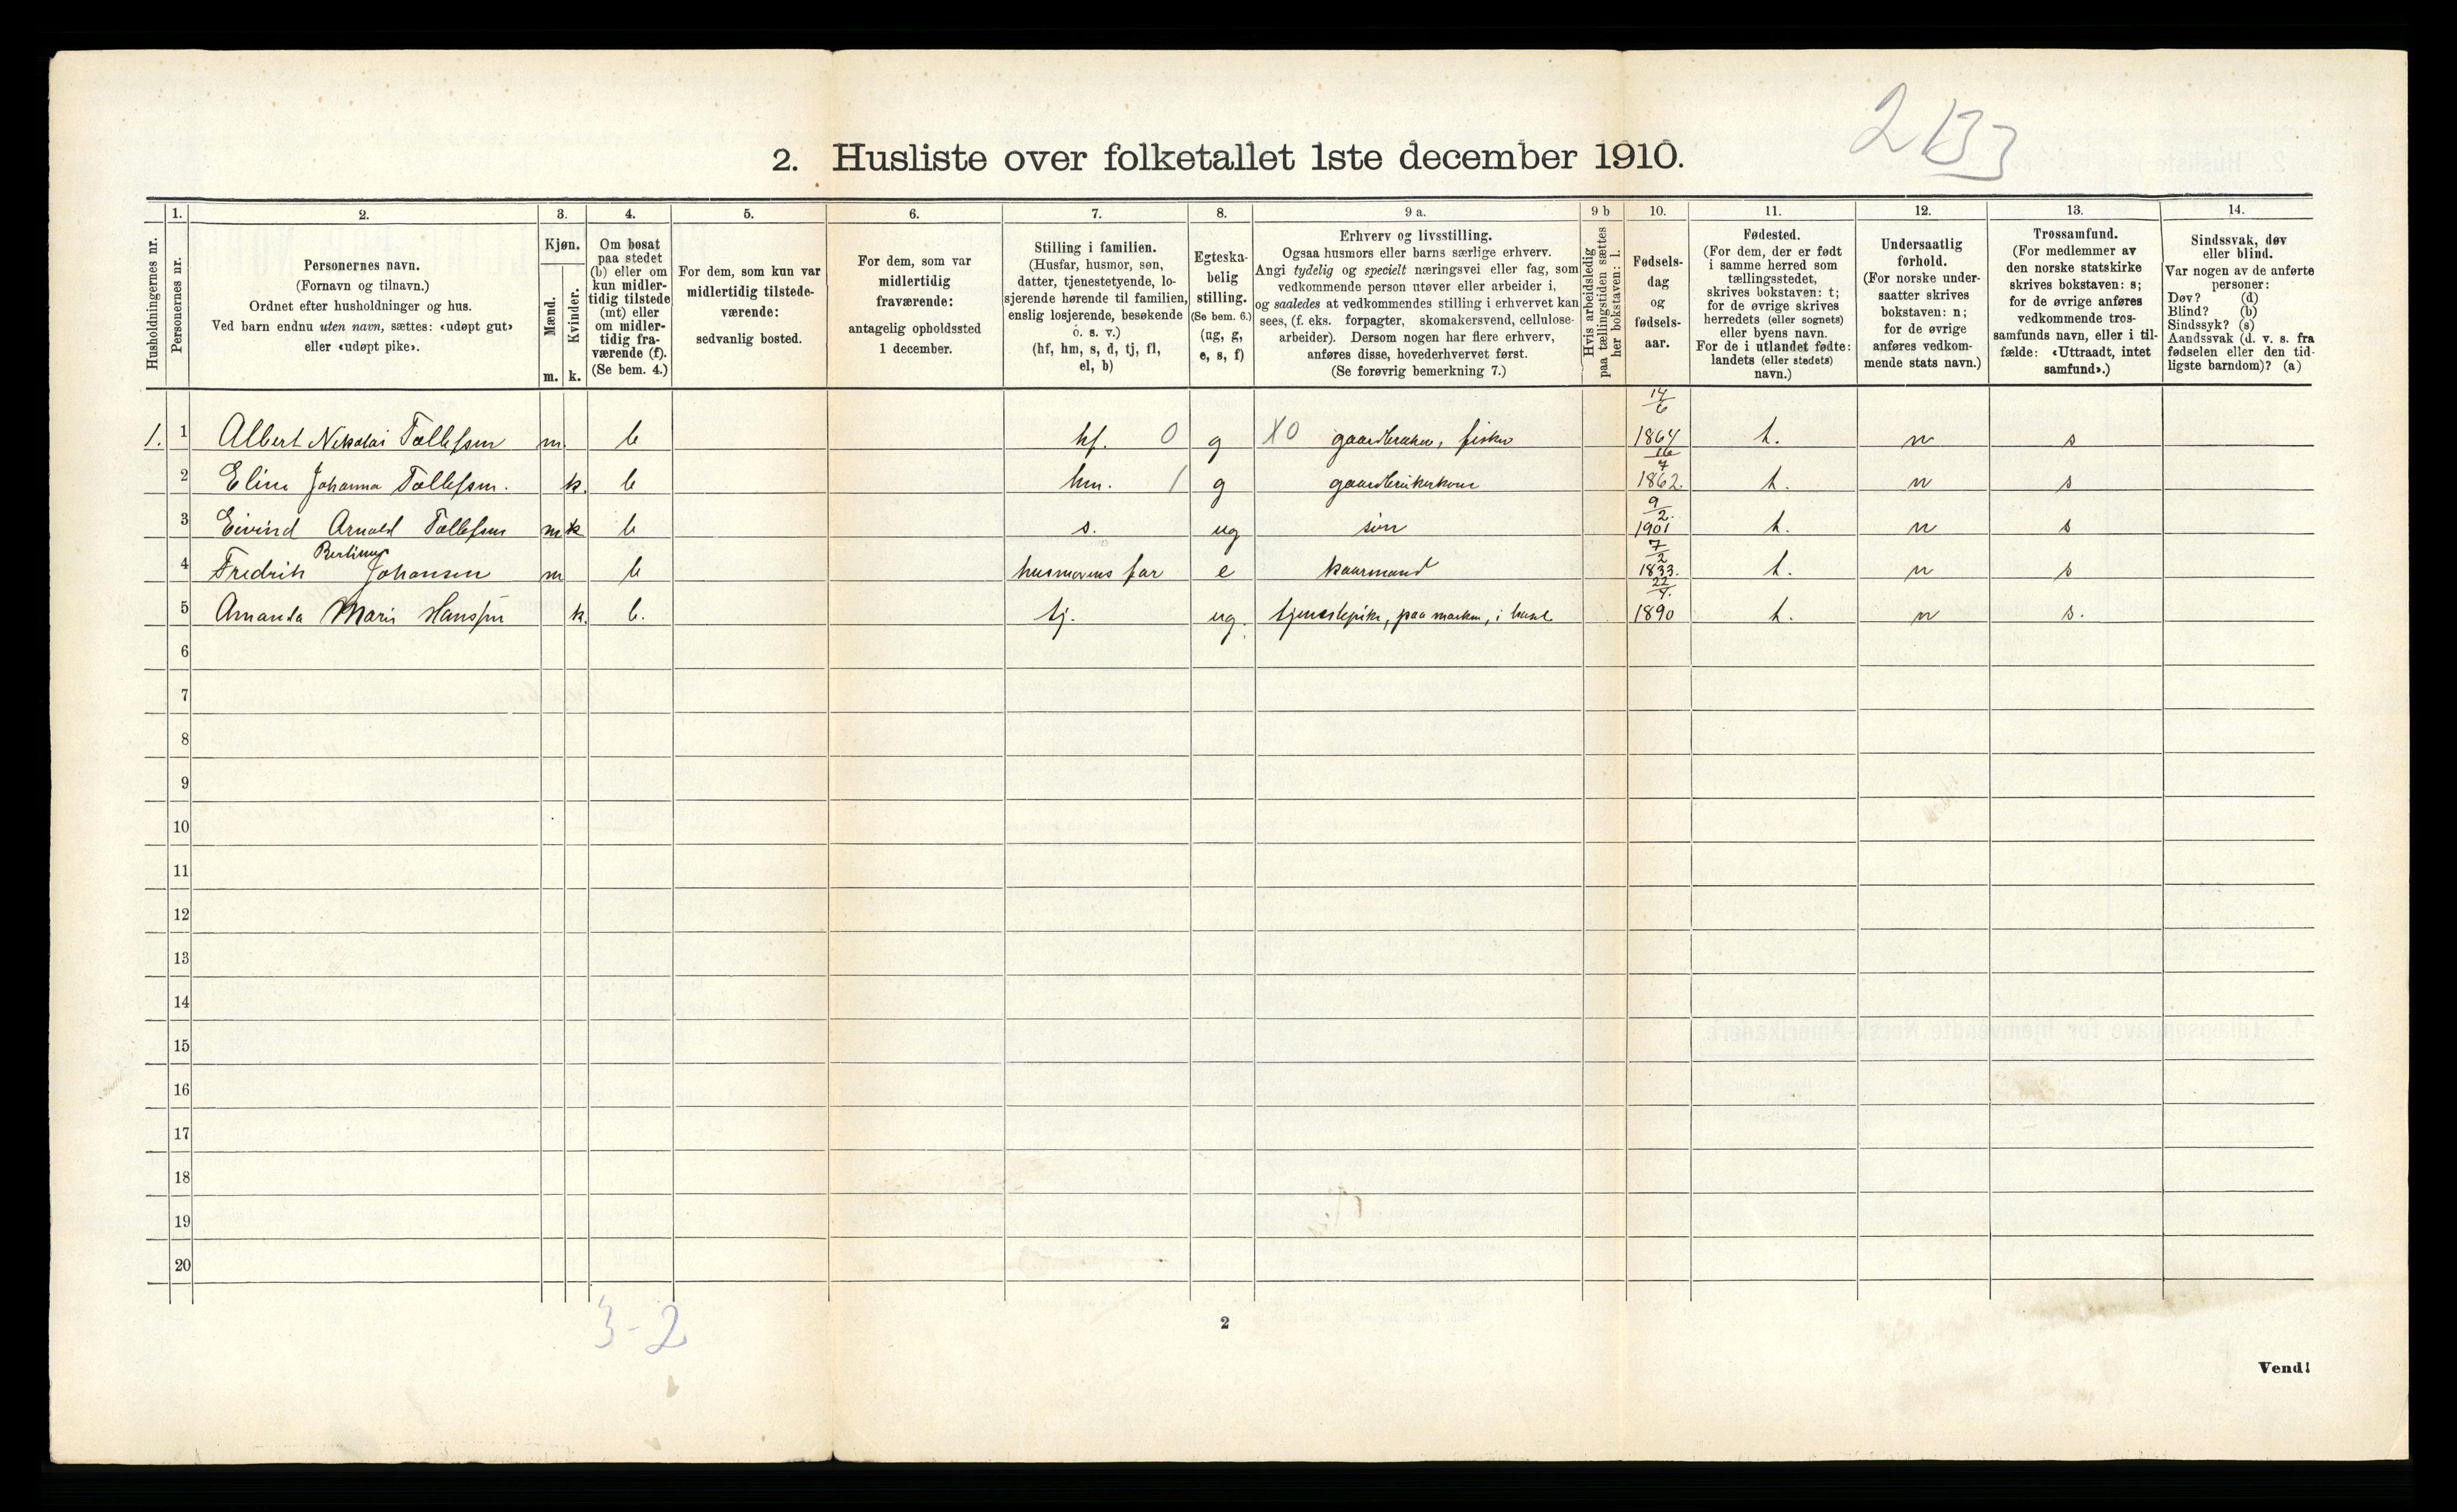 213
2. Husliste over folketallet 1ste december 1910.
Husholdningernes nr.
1.
Personernes nr.
2.
Personernes navn.
(Fornavn og tilnavn.)
Ordnet efter husholdninger og hus.
Ved barn endnu uten navn, sættes: «udøpt gut»
eller «udøpt pike».
3.
Kjøn.
Mænd.
Kvinder.
m. k.
4.
Om bosat
paa stedet
(b) eller om
kun midler-
tidig tilstede
(mt) eller
om midler-
tidig fra-
værende (f).
(Se bem. 4.)
5.
For dem, som kun var
midlertidig tilstede-
værende:
sedvanlig bosted.
6.
For dem, som var
midlertidig
fraværende:
antagelig opholdssted
1 december.
7.
Stilling i familien.
(Husfar, husmor, søn,
datter, tjenestetyende, lo-
sjerende hørende til familien,
enslig losjerende, besøkende
o. s. v.)
(hf, hm, s, d, tj, fl,
el, b)
8.
Egteska-
belig
stilling.
(Se bem. 6.)
(ug, g,
e, s, f)
9 a.
Erhverv og livsstilling.
Ogsaa husmors eller barns særlige erhverv.
Angi tydelig og specielt næringsvei eller fag, som
vedkommende person utøver eller arbeider i,
og saaledes at vedkommendes stilling i erhvervet kan
sees, (f. eks. forpagter, skomakersvend, cellulose-
arbeider). Dersom nogen har flere erhverv,
anføres disse, hovederhvervet først.
(Se forøvrig bemerkning 7.)
9 b
Hvis arbeidsledig
paa tællingstiden sættes
her bokstaven: l.
10.
Fødsels-
dag
og
fødsels-
aar.
11.
Fødested.
(For dem, der er født
i samme herred som
tællingsstedet,
skrives bokstaven: t;
for de øvrige skrives
herredets (eller sognets)
eller byens navn.
For de i utlandet fødte:
landets (eller stedets)
navn.)
12.
Undersaatlig
forhold.
(For norske under-
saatter skrives
bokstaven: n;
for de øvrige
anføres vedkom-
mende stats navn.)
13.
Trossamfund.
(For medlemmer av
den norske statskirke
skrives bokstaven: s;
for de øvrige anføres
vedkommende tros-
samfunds navn, eller i til-
fælde: «Uttraadt, intet
samfund».)
14.
Sindssvak, døv
eller blind.
Var nogen av de anførte
personer:
Døv? (d)
Blind? (b)
Sindssyk? (s)
Aandssvak (d. v. s. fra
fødselen eller den tid-
ligste barndom)? (a)
1. 1 Albert Nikolai Tollefsen m. b hf. 0 g X0 gaardbruker, fisker 14/6 1864 t. n s
2 Eline Johanna Tollefsen. k. b hm. 1 g gaardbrukerkone 16/7 1862. t. n s
3 Eivind Arnold Tollefsen m k b s. ug søn 9/2. 1901 t. n s
4 Fredrik Bertinus Johansen m b husmorens far e kaarmand 7/2 1833. t. n s
5 Amanda Marie Hanssen k. b. tj. ug. tjenestepike, paa marken, i huset 22/4. 1890 t. n s.
6
7
8
9
10
11
12
13
14
15
16
17
18
19
20
3-2
2
Vend!